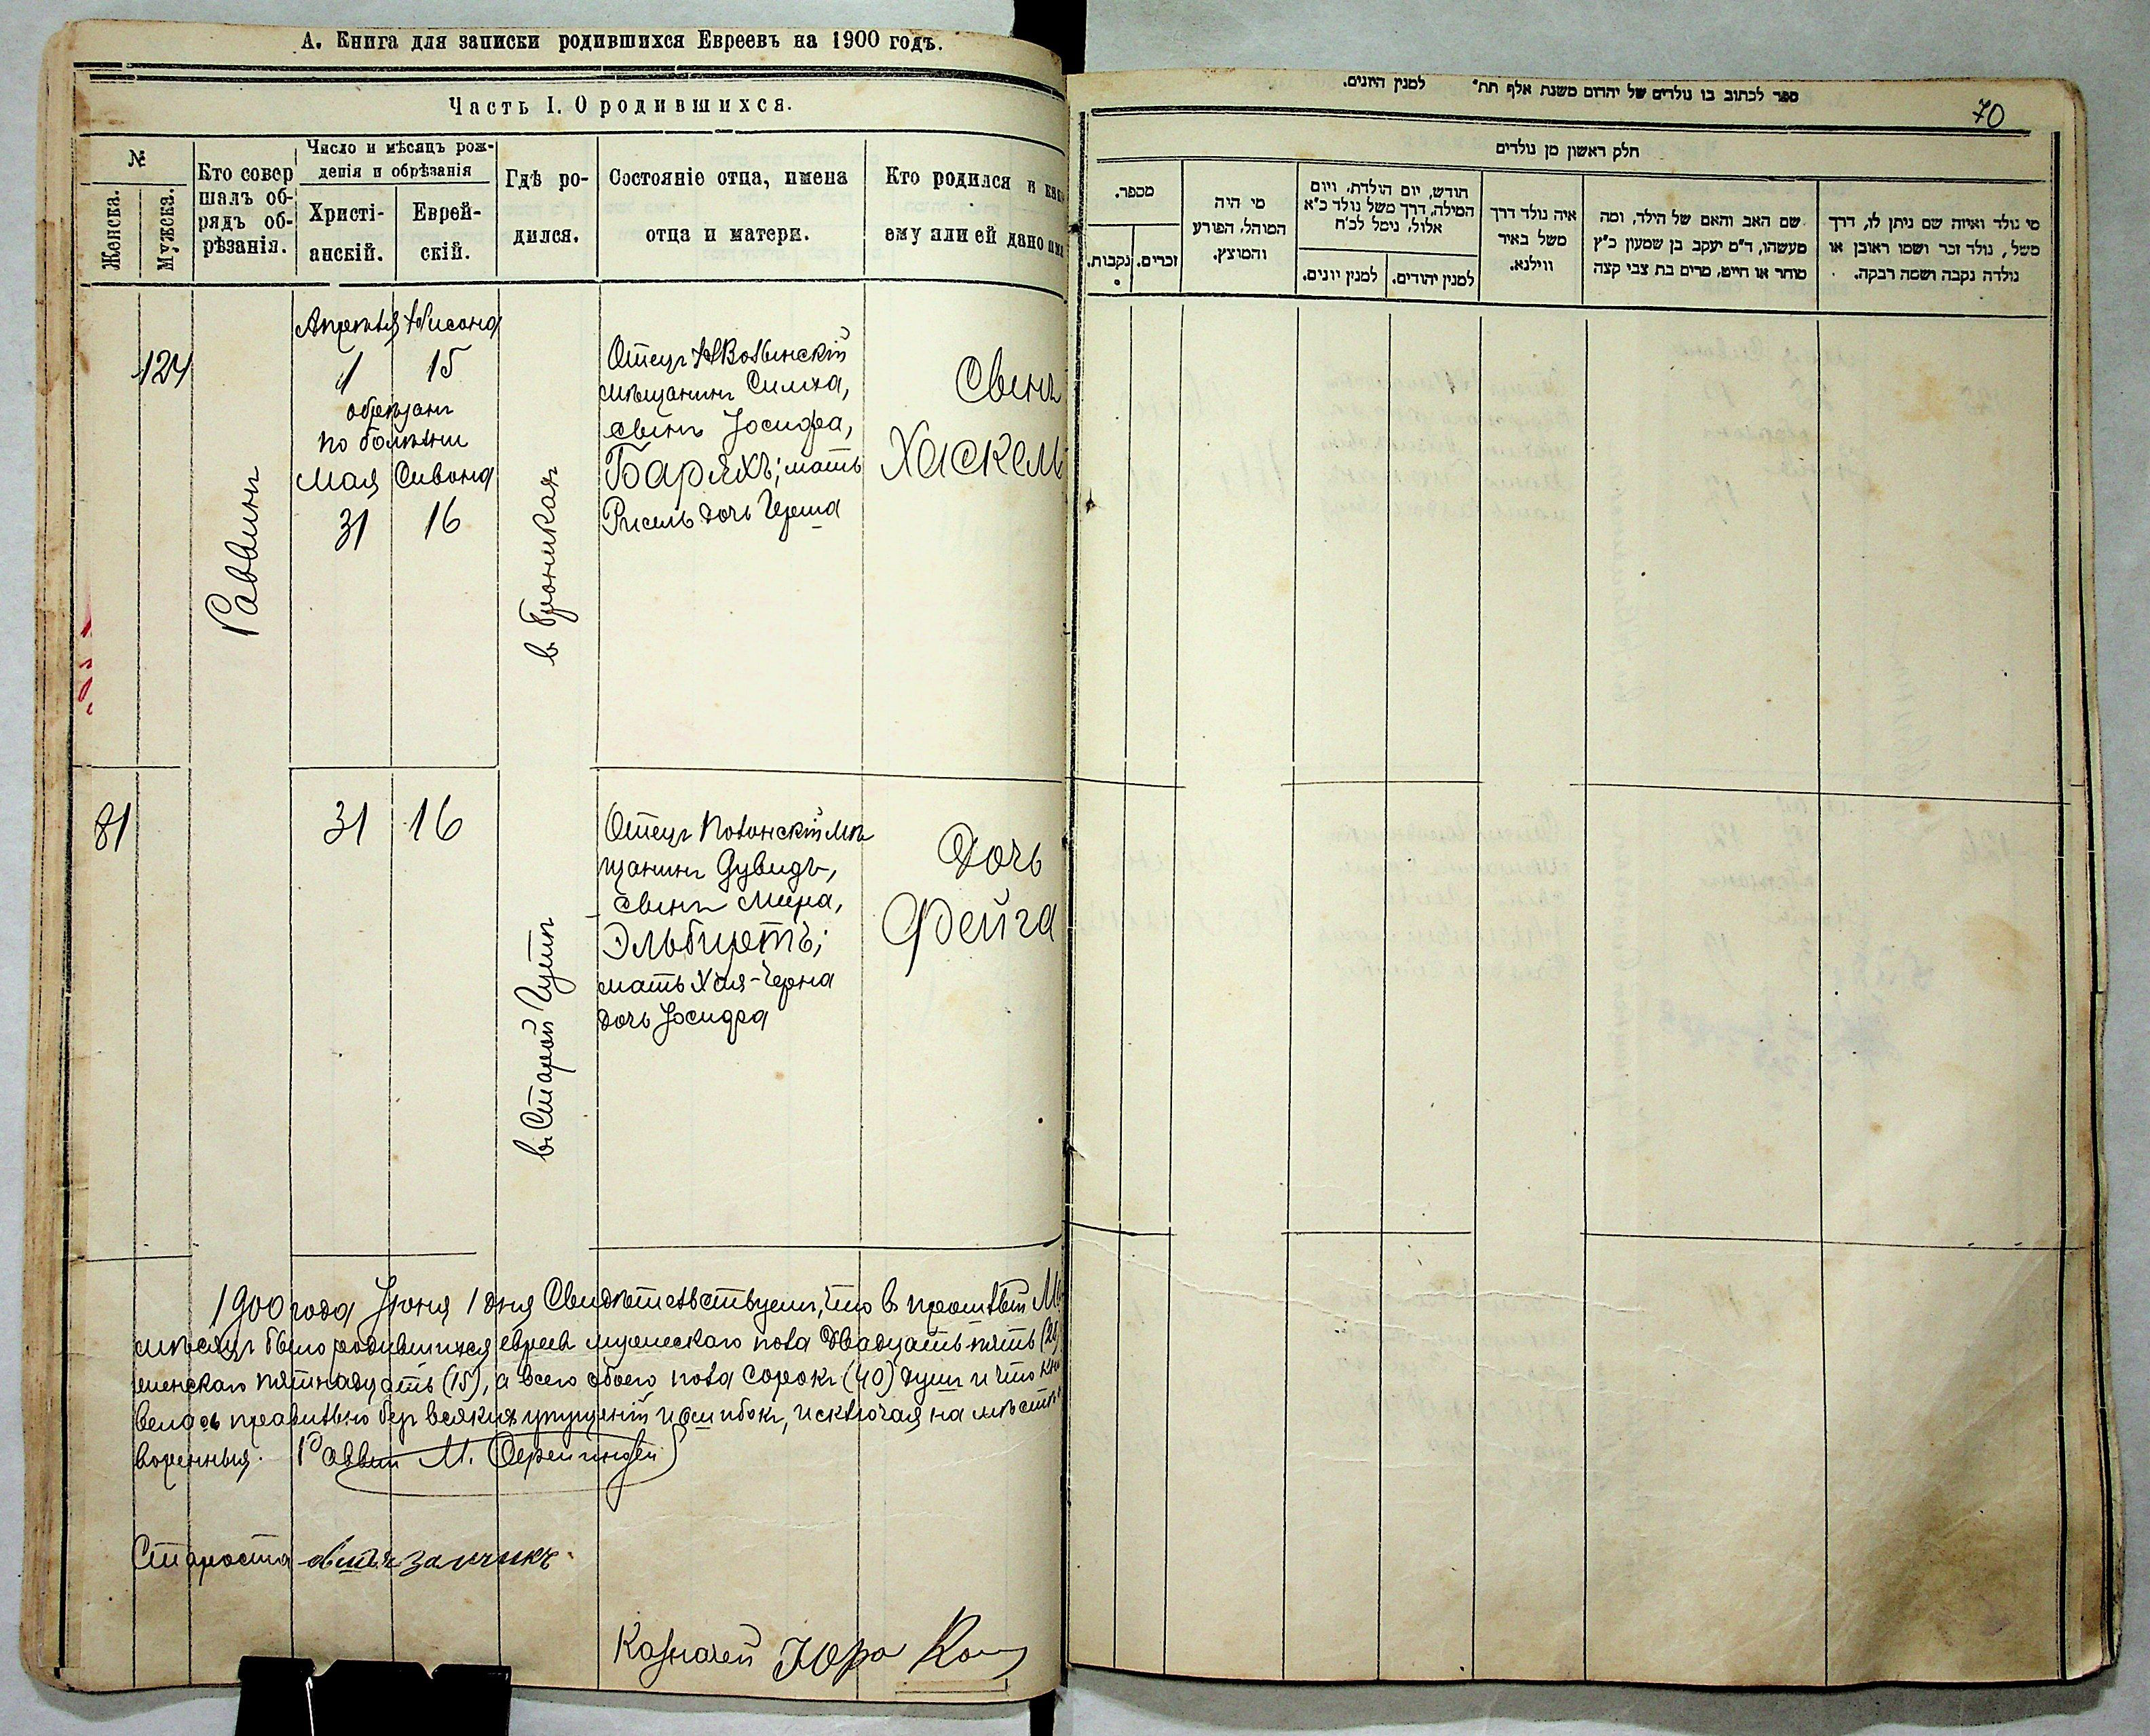 А. Книга для записки родившихся Евреевъ на 1900 годъ.
Часть I. О родившихся.
№
Женска.
Мужска.
Кто совер
шалъ об-
рядъ об-
рѣзанія.
Число и мѣсяцъ рож-
денія и обрѣзанія
Христі-
анскій.
Еврей-
скій.
Гдѣ ро-
дился.
Состояніе отца, имена
отца и матери.
Кто родился и как
ему или ей дано им
124
Раввинъ
Апрѣля Нисона
1 15
обрѣзанъ
по болѣзни
Мая Сивона
31 16
в. Броникая
Отецъ
мѣщанинъ Симха,
сынъ Іосифа,
Баряхъ; мать
Рисель дочь Герша
Сынъ
Хаскель
81
31 16
в. Старой Гутѣ
Отецъ Полонскій мѣ
щанинъ Дувидъ,
сынъ Меира,
Эльбиретъ;
мать Хая-Черна
дочь Іосифа
Дочь
Фейга
1900 года Іюня 1 дня Свидѣтельствуемъ, что в прошлый
мѣсяцъ было родившихся евреев мужескаго пола двадцать-пять (25)
женскаго пятнадцать (15), а всего обоего пола сорокъ (40) душъ и что кни
велась правильно безъ всякихъ упущеній и ошибокъ, исключая на мѣстѣ
воренныя. Раввин М.
Староста
Казначей Юра
ספר לכתוב בו נולדים של יהדום משנת אלף תת״ למנין היונים.
70
חלק ראשון מן נולדים
מספר.
נקבות.
זכרים.
מי היה
המוהל, הפורע
והמוצץ.
חודש, יום הולדת, ויום
המילה, דרך משל נולד כ״א
אלול, נימל לכ״ח
למנין יונים.
למנין יהודים.
איה נולד דרך
משל באיר
ווילנא.
שם האב והאם של הילד, ומה
מעשהו, ד״מ יעקב בן שמעון כ״ץ
סוחר או חייט, מרים בת צבי קצה
מי נולד ואיזה שם ניתן לו, דרך
משל, נולד זכר ושמו ראובן או
נולדה נקבה ושמה רבקה.